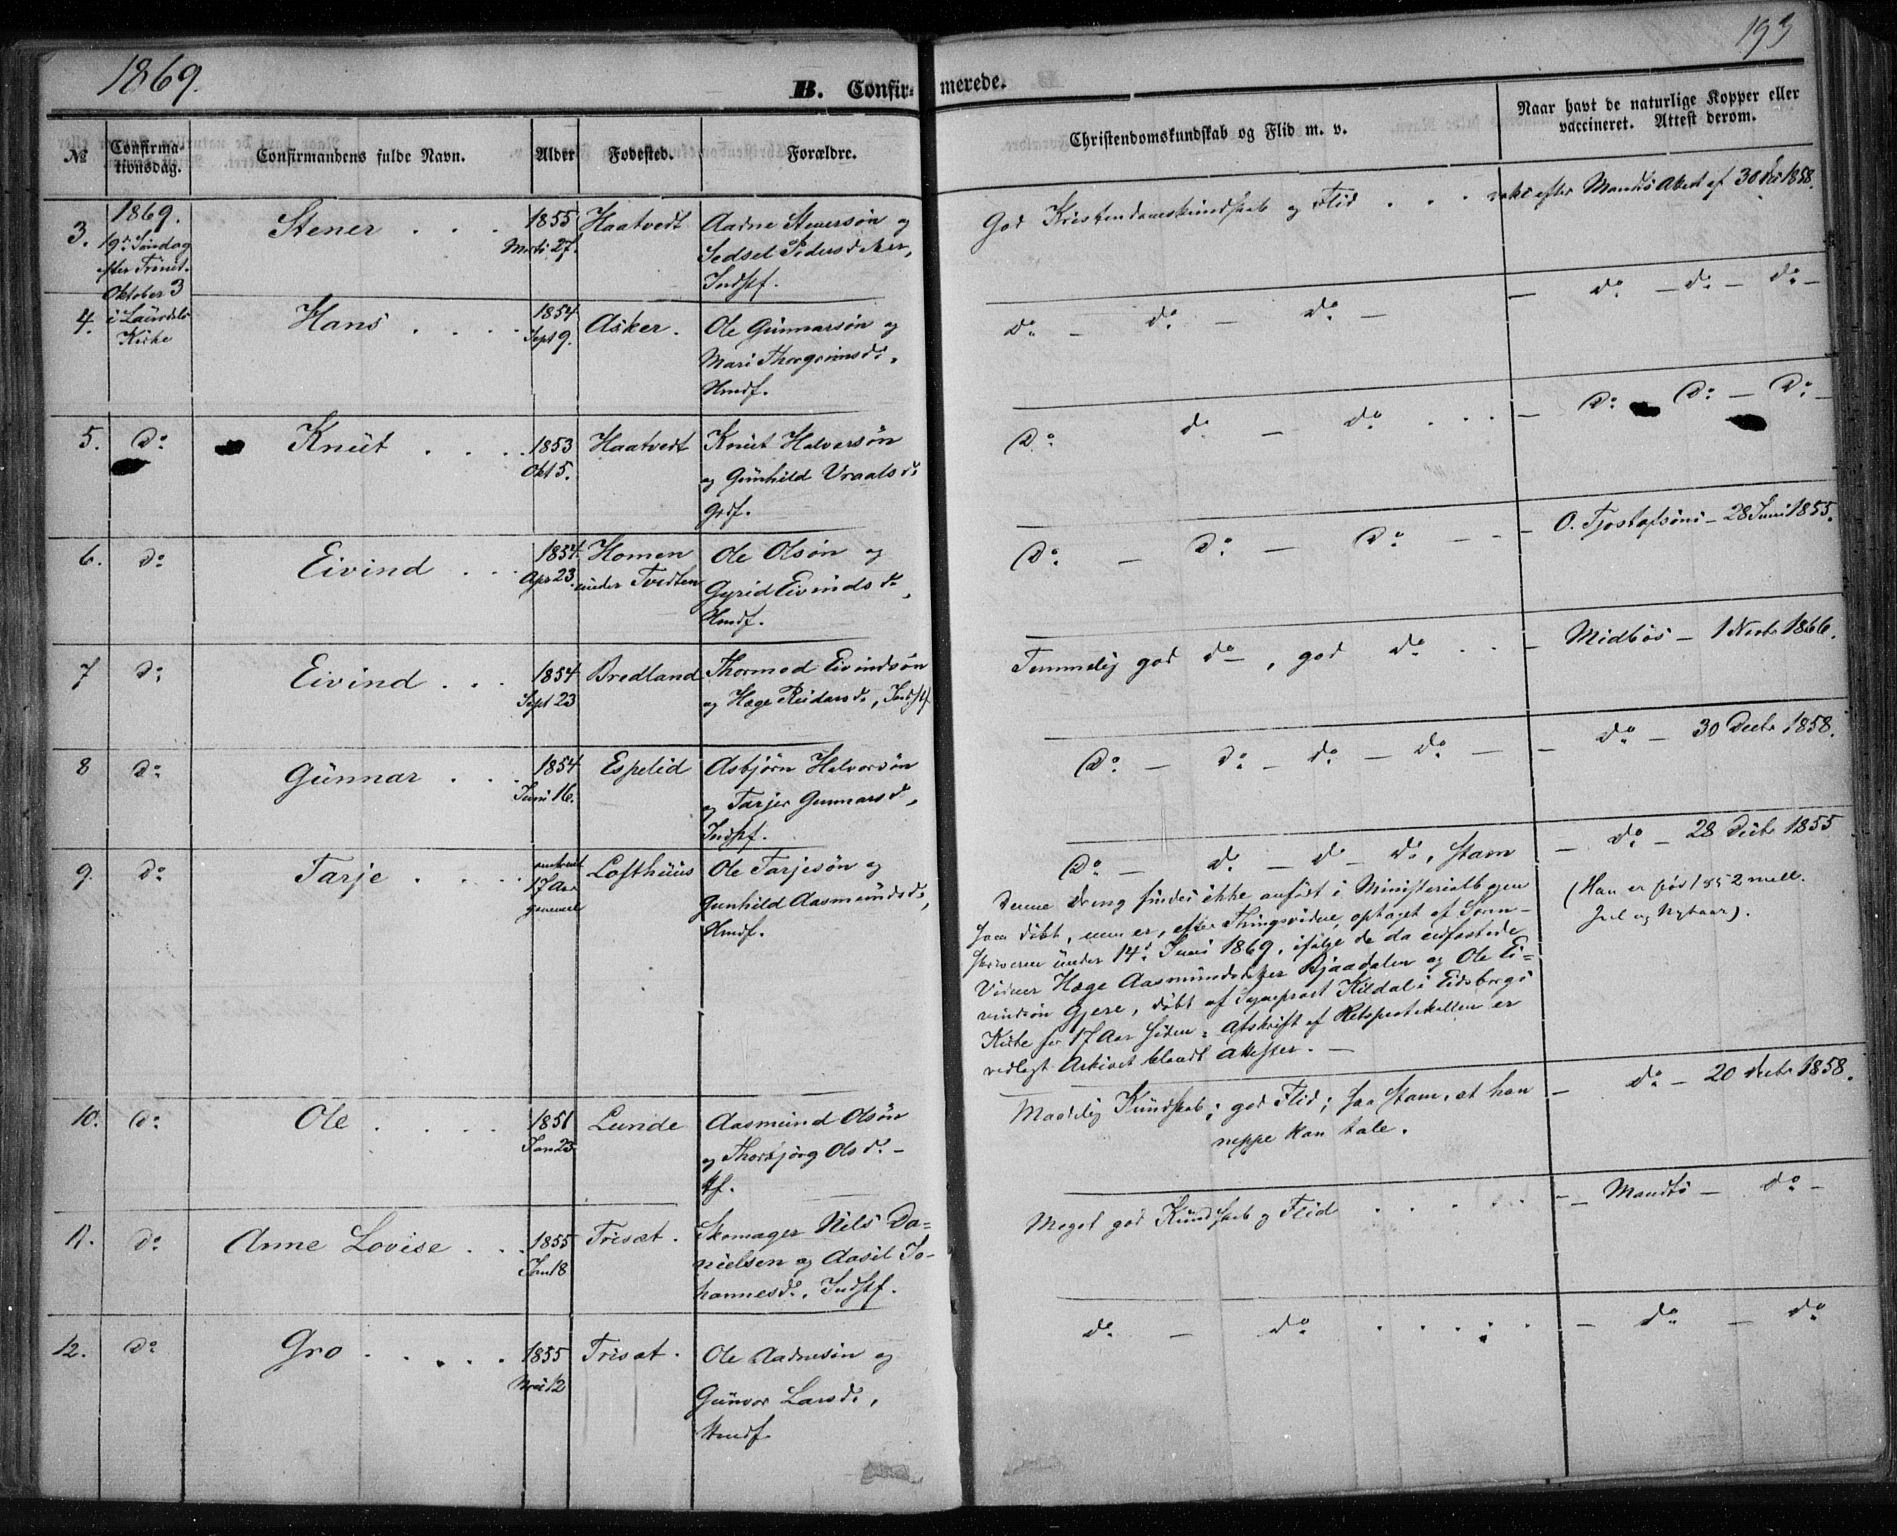 1869.
193
B. Confirmerede.
№
Confirmationsdag.
Confirmandens fulde Navn.
Alder
Fodested.
Forældre.
Christendomskundskab og Flid m. v.
Naar havt de naturlige Kopper eller vaccineret. Attest derom.
3.
1869.
19de Søndag
efter Trinit.
Oktober 3
i Laurdals
Kirke
Stener . . .
1855
27.
Haatvedt
Aadne Stenersøn og
Sedsel Pedersdatter,
Indstf.
God Kristendomskundskab og Flid . . .
vakc. efter Mandts Attest af 30 1858.
4.
Hans . . . .
1854
Sept 9.
Asker.
Ole Gunnarsøn og
Mari Thorgrimsd:,
Hmdf.
do – do – do –
– do – do – do –
5.
do
Knut . . . .
1853
Okt 5.
Haatvedt
Knut Halvorsøn
og Gunhild Vraalsd:
Grdf.
Do do – do . . .
– Do – Do – Do –
6.
do
Eivind . . .
1854.
Apr 23.
Homen
under Tvedten
Ole Olsøn og
Gyrid Eivindsd:,
Hmdf.
Do – Do – Do – –
– O. Tjostofsøns – 28 Juni 1855.
7
do
Eivind . . .
1854
Sept 23
Bredland
Thormod Eivindsøn
og Hæge Reidarsd:, Indstf
Temmelig god do –, god do . . .
– Midbøs – 1 1866.
8
do
Gunnar . . .
1854
Juni 16.
Espelid
Asbjørn Halvorsøn
og Tarjer Gunnarsd:,
Indstf.
Do – do – do – do –
– do – 30 Decbr 1858.
9.
do
Tarje . . . .
omtrent
17 Aar
gammel
Lofthuus
Ole Tarjesøn og
Gunhild Aasmundsd:,
Hmdf.
Do – do – do – do, stam
Denne Dreng findes ikke anført i Ministerialbogen
som døbt, men er, efter Thingsvidne, optaget af Soren-
skriveren under 14de Juni 1869, ifølge de da edfæstede
Vidner Hæge Aasmundsdatter Bjaadalen og Ole Ei-
vindsøn Gjere, døbt af Sogneprest Kildal i Eidsborgs
Kirke for 17 Aar siden. Afskrift af Retsprotokollen er
vedlagt Arkivet blandt Attester. –
– do – 28 Decbr 1855
(Han er født 1852 mell.
Jul og Nytaar).
10.
do
Ole . . . .
1851
Jan 23
Lunde
Aasmund Olsøn
og Thorbjørg Olsd: –
Maadelig Kundskab; god Flid; saa stam, at han
neppe kan tale.
– do – 20 Decbr 1858.
11.
do
Anne Lovise . . .
1855
Jan 18
Trisæt.
Skomager Nils Da-
nielsen og Aasil Jo-
hannesd:, Indstf.
Meget god Kundskab og Flid . . . . .
– – Mandts – do –
12.
do
Gro . . . . .
1855
12
Trisæt.
Ole Aadnesøn og
Gunvor Larsd:,
Hmdf
do – do . . . . .
– do – do